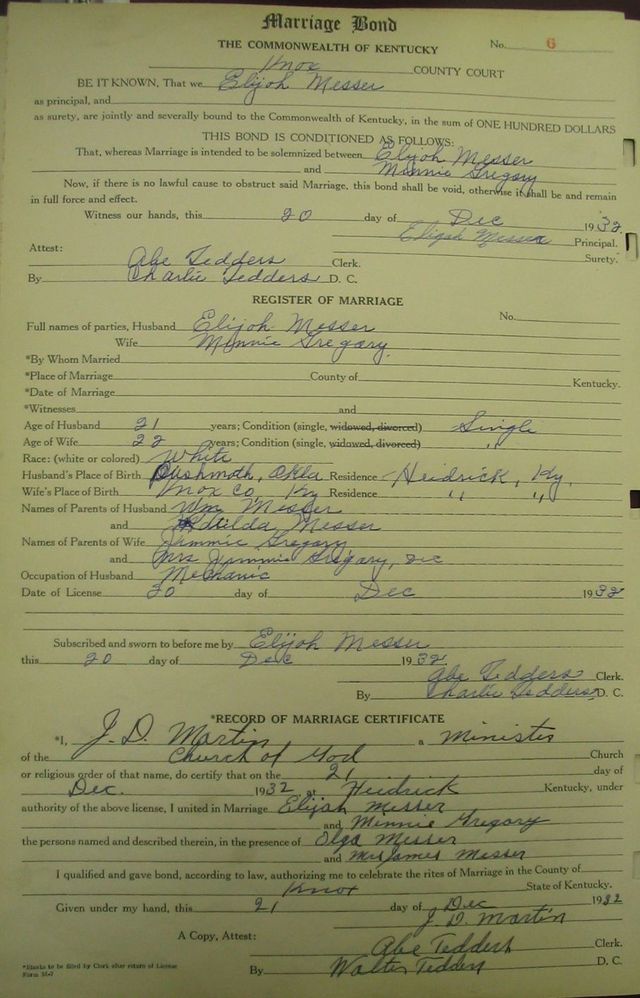 Marriage Bond
THE COMMONWEALTH OF KENTUCKY No. 6
Knox COUNTY COURT
BE IT KNOWN, That we Elijoh Messer
as principal, and
as surety, are jointly and severally bound to the Commonwealth of Kentucky, in the sum of ONE HUNDRED DOLLARS
THIS BOND IS CONDITIONED AS FOLLOWS:
That, whereas Marriage is intended to be solemnized between Elijoh Messer
and Minnie Gregory
Now, if there is no lawful cause to obstruct said Marriage, this bond shall be void, otherwise it shall be and remain
in full force and effect.
Witness our hands, this 20 day of Dec 1932
Elijah Messer Principal.
Attest: Surety.
Abe Tedders Clerk.
By Charlie Tedders D. C.
REGISTER OF MARRIAGE
No.
Full names of parties, Husband Elijoh Messer
Wife Minnie Gregary.
*By Whom Married
*Place of Marriage County of Kentucky.
*Date of Marriage
*Witnesses and
Age of Husband 21 years; Condition (single, widowed, divorced) Single
Age of Wife 22 years; Condition (single, widowed, divorced) "
Race: (white or colored) White
Husband's Place of Birth Okla Residence Heidrick, Ky,
Wife's Place of Birth Knox Co, Ky Residence " "
Names of Parents of Husband Wm Messer
and Matilda Messer
Names of Parents of Wife Jimmie Gregory
and Mrs Jimmie Gregary, Dec
Occupation of Husband Mechanic
Date of License 20 day of Dec 1932
Subscribed and sworn to before me by Elijoh Messer
this 20 day of Dec 1932.
Abe Tedders Clerk.
By Charlie Tedders D. C.
*RECORD OF MARRIAGE CERTIFICATE
*I, J. D. Martin a Minister
of the Church of God Church
or religious order of that name, do certify that on the 21 day of
Dec. 1932, at Heidrick Kentucky, under
authority of the above license, I united in Marriage Elijah Messer
and Minnie Gregory
the persons named and described therein, in the presence of Olga Messer
and Mrs James Messer
I qualified and gave bond, according to law, authorizing me to celebrate the rites of Marriage in the County of
Knox State of Kentucky.
Given under my hand, this 21 day of Dec 1932
J. D. Martin
A Copy, Attest: Abe Tedders Clerk.
By Walter Tedders D. C.
*Blanks to be filed by Clerk after return of License